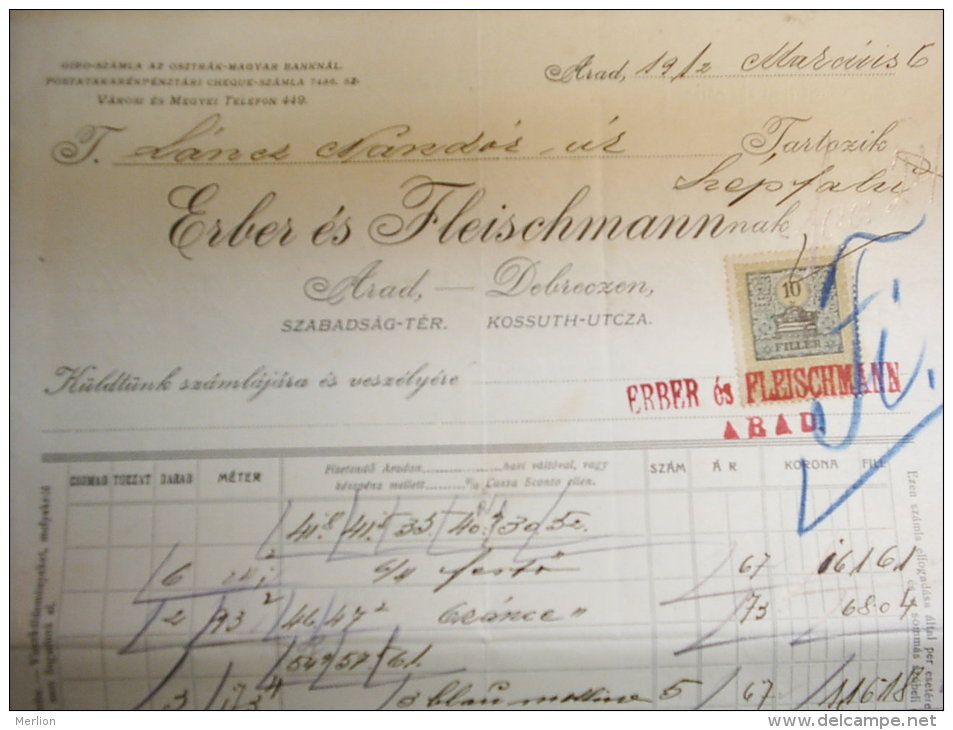 GIRO-SZÁMLA AZ OSZTRÁK-MAGYAR BANKNÁL.
POSTATAKARÉKPÉNZTÁRI CHEQUE-SZÁMLA SZ.
VÁROSI ÉS MEGYEI TELEFON 449.
Arad, 1912 Március 6
T. Láncz Nándor úr Tartozik
Szépfalu
Erber és Fleischmannnak
Arad, — Debreczen,
SZABADSÁG-TÉR. KOSSUTH-UTCZA.
10
FILLÉR
Küldtünk számlájára és veszélyére
ERBER és FLEISCHMANN
ARAD.
CSOMAG TOKZAT DARAB MÉTER
Fizetendő Aradon havi váltóval, vagy
készpénz mellett % Cassa Sconto ellen.
SZÁM ÁR KORONA FILL
41 8 41 33 40 9 39 52.
6 6/4 festő 67 161 61
2 93 2 46 47 2 " 73 68 04
54 9 57 61.
3 173 4 3 blau 5 67 116 18
Ezen számla elfogadása által per esetére
Merlion
http://www.delcampe.net